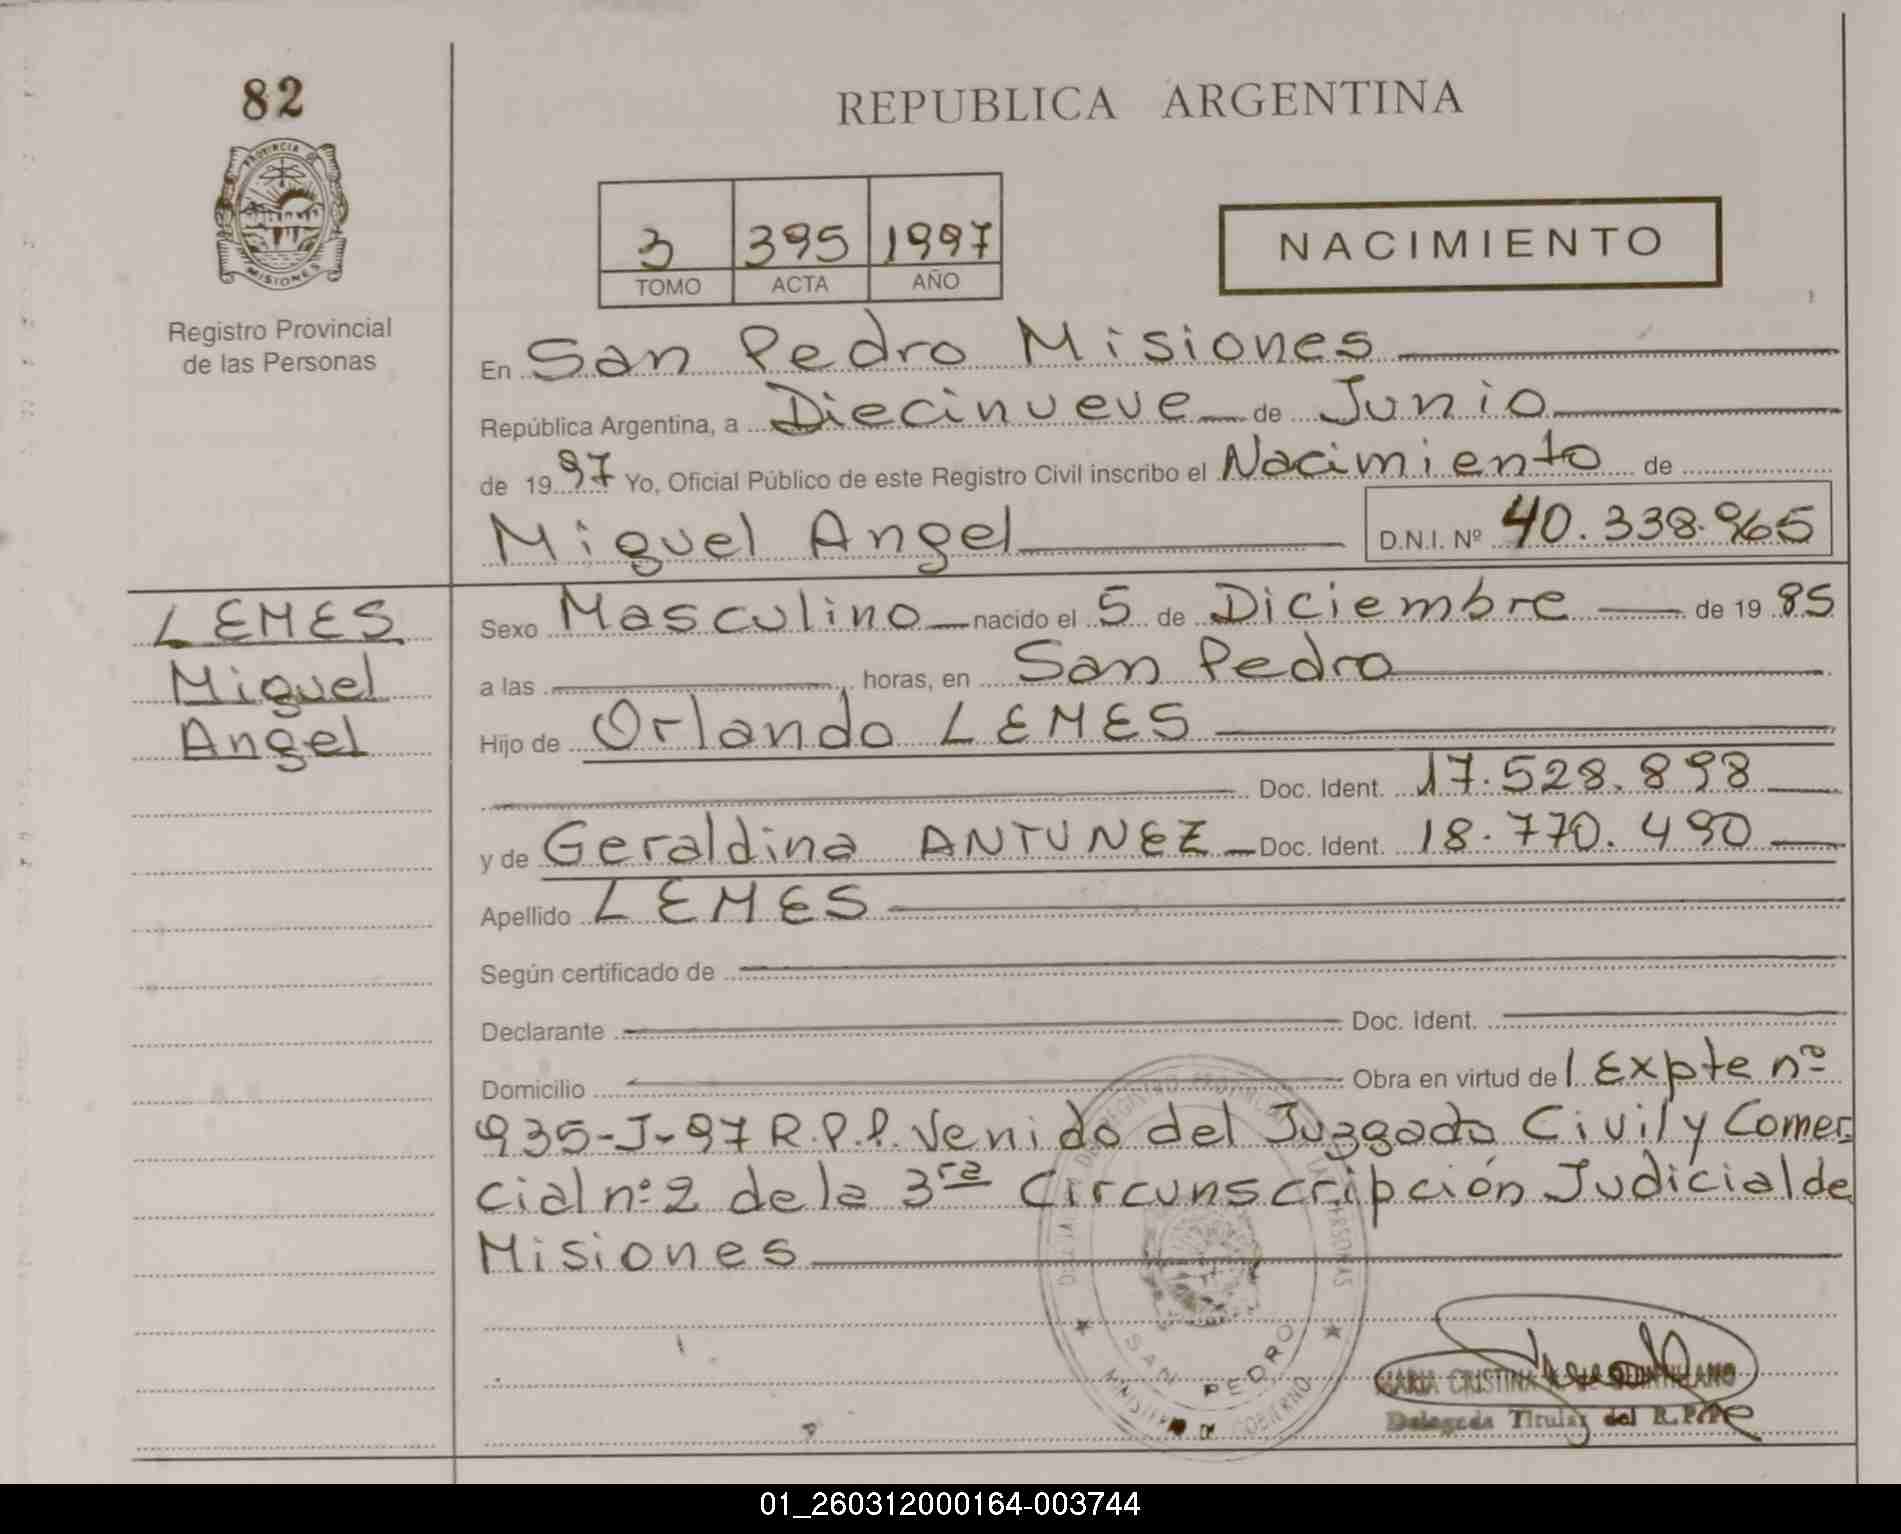 82
REPUBLICA ARGENTINA
PROVINCIA DE
MISIONES
Registro Provincial
de las Personas
3 395 1997
TOMO ACTA AÑO
NACIMIENTO
En San Pedro Misiones
República Argentina, a Diecinueve de Junio
de 1997 Yo, Oficial Público de este Registro Civil inscribo el Nacimiento de
Miguel Angel D.N.I. Nº 40.338.965
LEMES
Miguel
Angel
Sexo Masculino nacido el 5 de Diciembre de 1985
a las horas, en San Pedro
Hijo de Orlando LEMES
Doc. Ident. 17.528.898
y de Geraldina ANTUNEZ Doc. Ident. 18.770.490
Apellido LEMES
Según certificado de
Declarante Doc. Ident.
Domicilio Obra en virtud del Expte nº
935-J-97 R.P.P. Venido del Juzgado Civil y Comer
cial nº 2 de la 3ra Circunscripción Judicial de
Misiones
SAN PEDRO
MINISTERIO DE GOBIERNO
MARIA CRISTINA
Delegada Titular del R.P.P.
01_260312000164-003744